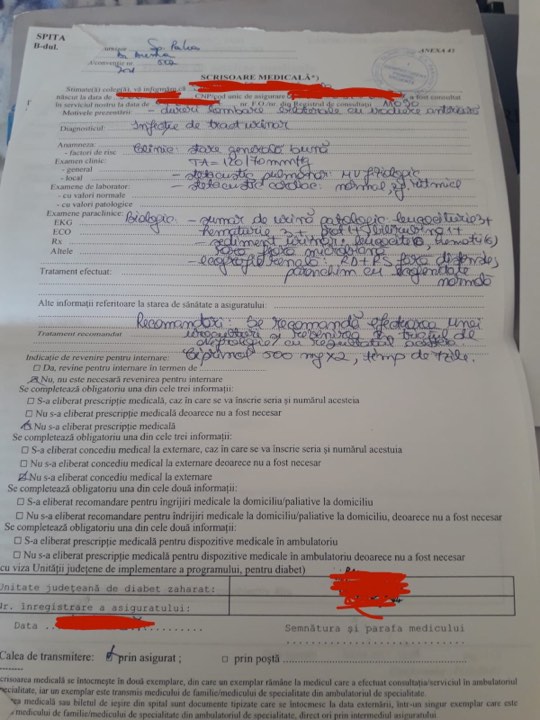 SPITA
B-dul.
ANEXA 43
SCRISOARE MEDICALĂ*)
Stimate(ă) coleg(ă), vă informăm că
născut la data de CNP/cod unic de asigurare a fost consultat
în serviciul nostru la data de nr. F.O./nr. din Registrul de consultații
Motivele prezentării - dureri lombare bilaterale cu iradiere anterioară
Diagnosticul: Infecție de tract urinar
Anamneza: Clinic: stare generală bună
- factori de risc
Examen clinic: TA = 120/70 mmHg
- general - stetacustic pulmonar MV fiziologic
- local - stetacustic cardiac: normal, ritmice
Examene de laborator:
- cu valori normale
- cu valori patologice
Examene paraclinice: Biologic - sumar de urină patologic: leucociturie 3+
EKG
ECO hematurie 3+, bilirubina 1+
Rx - sediment urinar: leucocite, hematii
Altele floră microbiană
- ecografie renală: RD + RS fără distensie,
Tratament efectuat: parenchim cu
normală
Alte informații referitoare la starea de sănătate a asiguratului:
Recomandări: Se recomandă efectuarea unei
uroculturi și revenirea în
Tratament recomandat cu rezultatul
Ciprinol 500 mg x 2, timp de zile.
Indicație de revenire pentru internare:
☐ Da, revine pentru internare în termen de
☒ Nu, nu este necesară revenirea pentru internare
Se completează obligatoriu una din cele trei informații:
☐ S-a eliberat prescripție medicală, caz în care se va înscrie seria și numărul acesteia
☐ Nu s-a eliberat prescripție medicală deoarece nu a fost necesar
☒ Nu s-a eliberat prescripție medicală
Se completează obligatoriu una din cele trei informații:
☐ S-a eliberat concediu medical la externare, caz în care se va înscrie seria și numărul acestuia
☐ Nu s-a eliberat concediu medical la externare deoarece nu a fost necesar
☒ Nu s-a eliberat concediu medical la externare
Se completează obligatoriu una din cele două informații:
☐ S-a eliberat recomandare pentru îngrijiri medicale la domiciliu/paliative la domiciliu
☐ Nu s-a eliberat recomandare pentru îndrijiri medicale la domiciliu/paliative la domiciliu, deoarece nu a fost necesar
Se completează obligatoriu una din cele două informații:
☐ S-a eliberat prescripție medicală pentru dispozitive medicale în ambulatoriu
☐ Nu s-a eliberat prescripție medicală pentru dispozitive medicale în ambulatoriu deoarece nu a fost necesar
cu viza Unității județene de implementare a programului, pentru diabet)
Unitate județeană de diabet zaharat:
Nr. înregistrare a asiguratului:
Data
Semnătura și parafa medicului
Calea de transmitere: ☒ prin asigurat ; ☐ prin poștă
Scrisoarea medicală se întocmește în două exemplare, din care un exemplar rămâne la medicul care a efectuat consultația/serviciul în ambulatoriul
specialitate, iar un exemplar este transmis medicului de familie/medicului de specialitate din ambulatoriul de specialitate.
medicală sau biletul de ieșire din spital sunt documente tipizate care se întocmesc la data externării, într-un singur exemplar care este
medicului de familie/medicului de specialitate din ambulatoriul de specialitate, direct ori prin intermediul asiguratului.